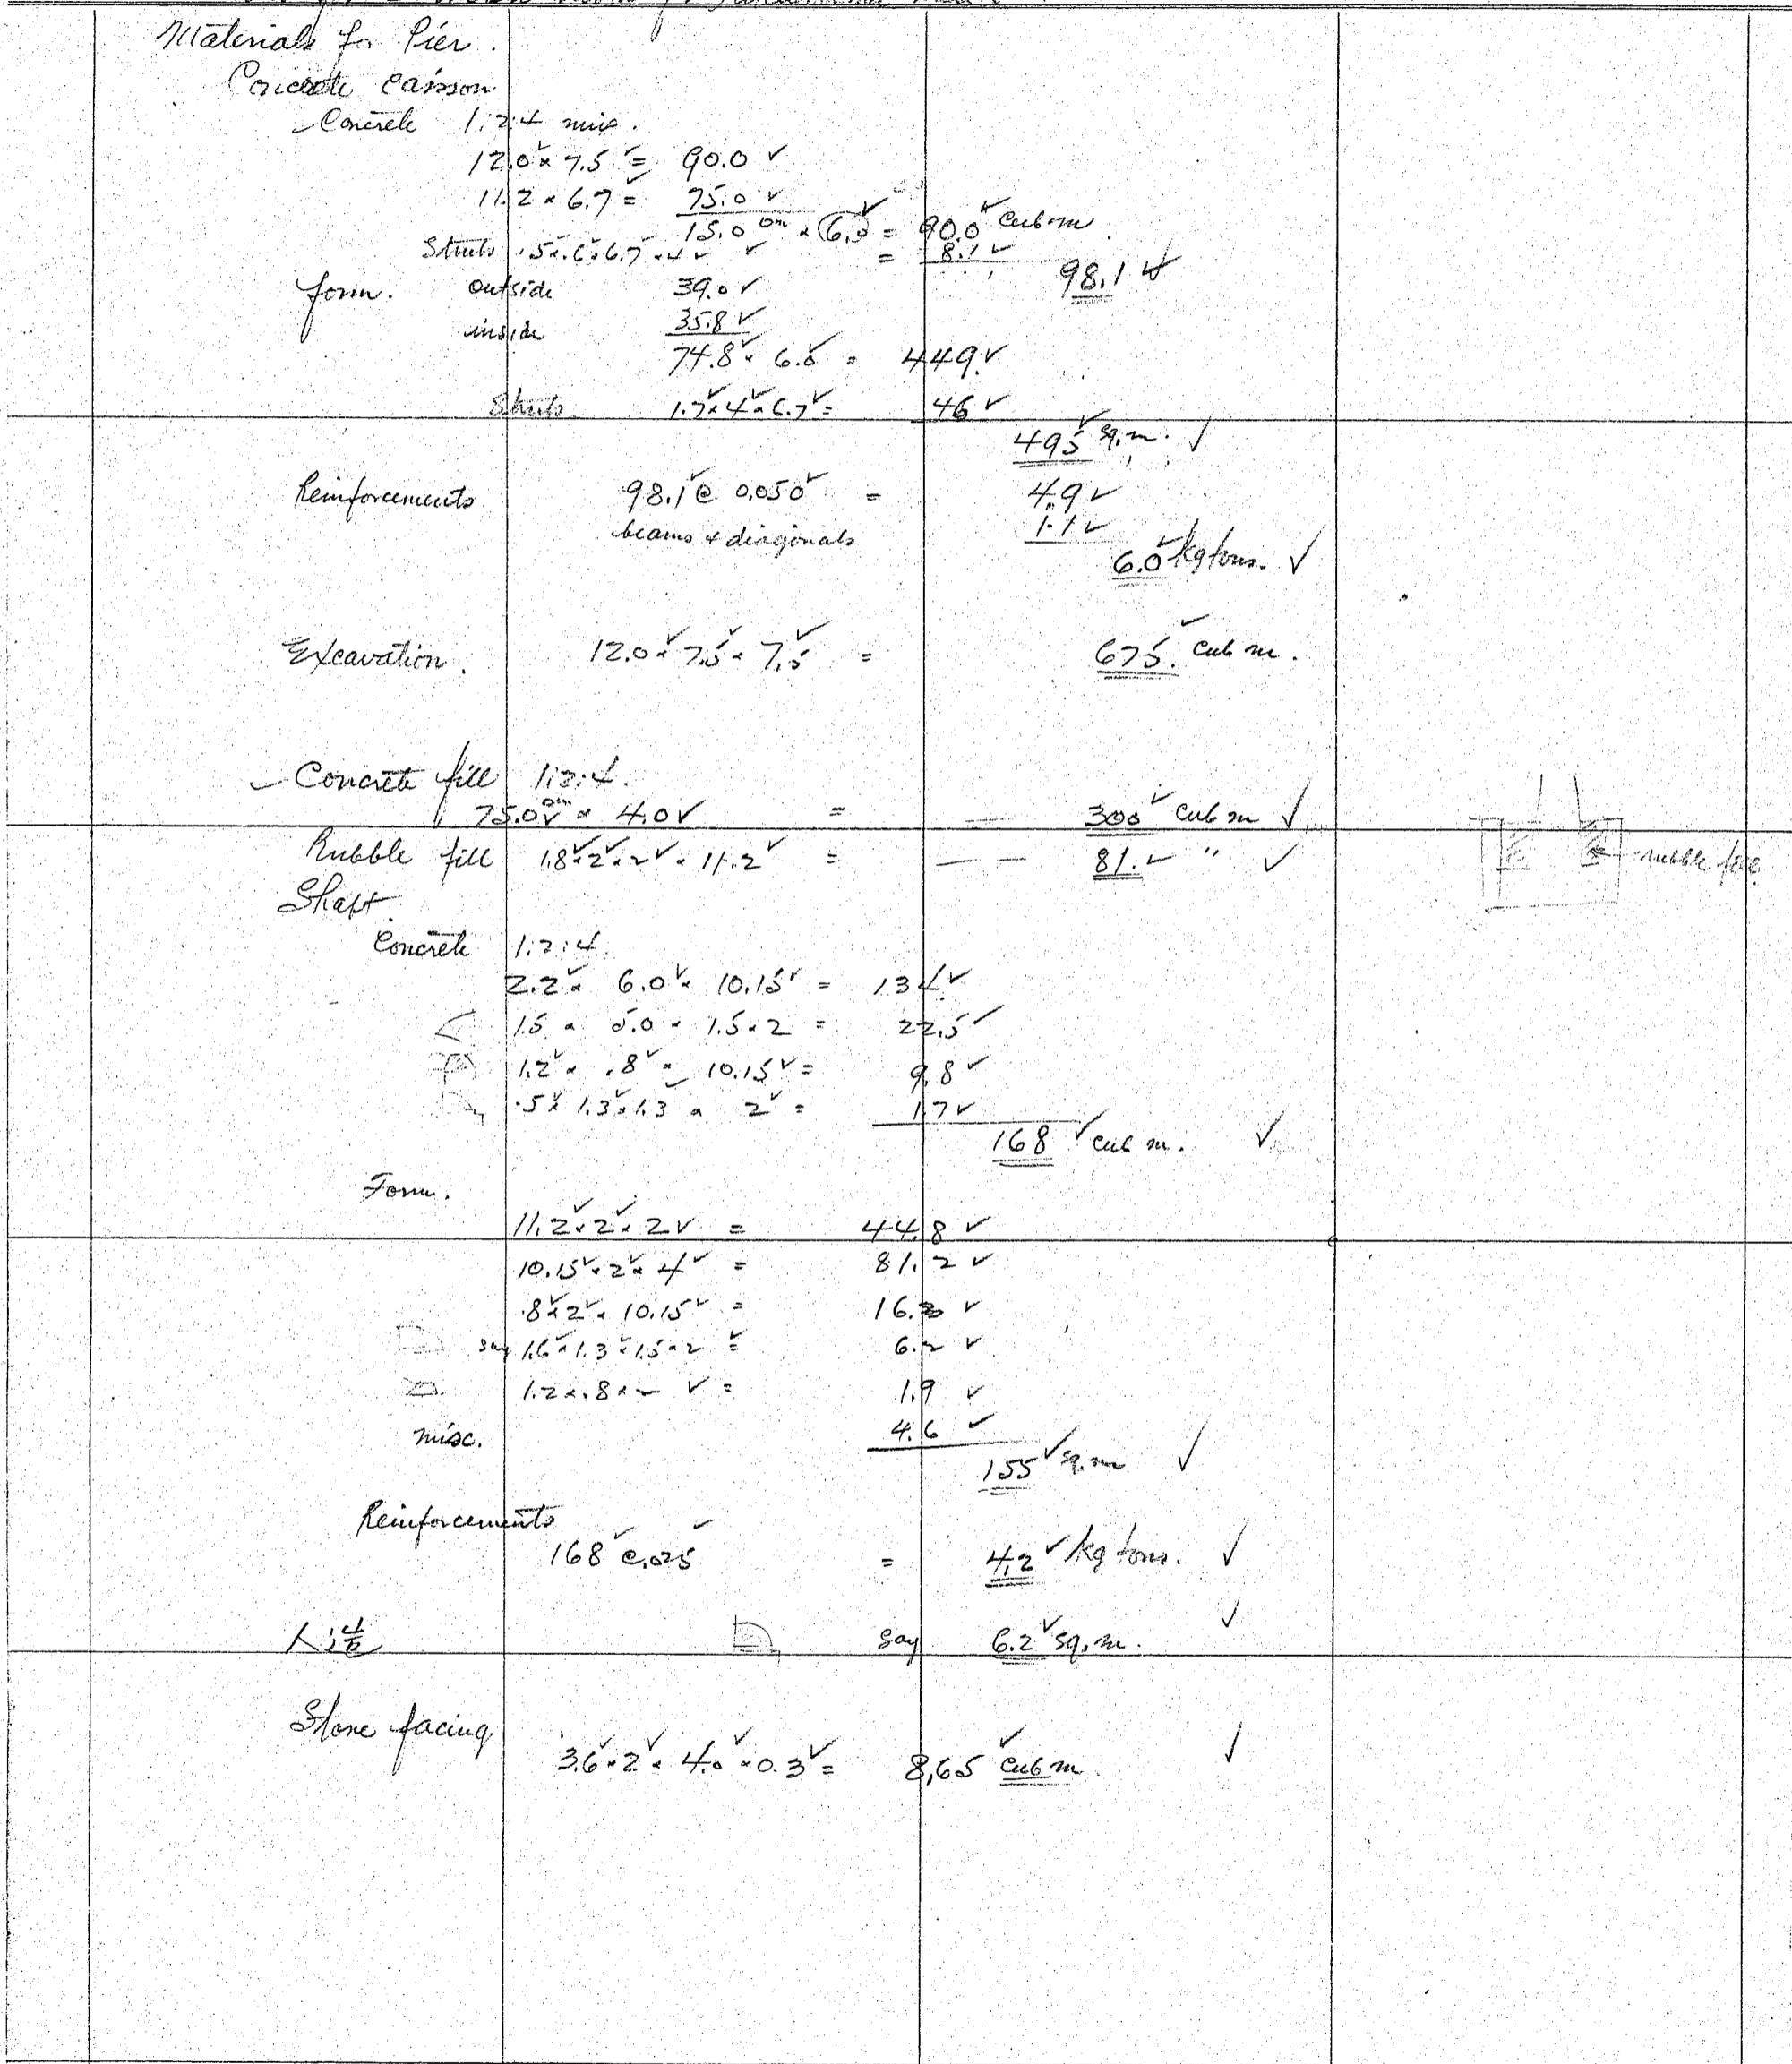 Materials for Pier.
Concrete Caisson
Concrete 1:2:4 mix.
12.0 × 7.5 = 90.0 ✓
11.2 × 6.7 = 75.0 ✓
15.0 × 6.0 = 90.0 Cub m.
Struts .5×.6×6.7×4 = 8.1 ✓
98.1 ✓
form. outside 39.0 ✓
inside 35.8 ✓
74.8 × 6.0 = 449 ✓
Struts 1.7×4×6.7 = 46 ✓
495 sq. m. ✓
Reinforcements 98.1 @ 0.050 = 4.9 ✓
beams & diagonals 1.1 ✓
6.0 kg tons. ✓
Excavation. 12.0 × 7.5 × 7.5 = 675. cub m.
Concrete fill 1:2:4.
75.0 × 4.0 ✓ = 300 cub m ✓
Rubble fill 1.8×2×2 × 11.2 = 81. " ✓
rubble fill
Shaft
Concrete 1:2:4.
2.2 × 6.0 × 10.15 = 134 ✓
1.5 × 5.0 × 1.5 × 2 = 22.5 ✓
1.2 × .8 × 10.15 = 9.8 ✓
.5 × 1.3 × 1.3 × 2 = 1.7 ✓
168 cub m. ✓
Form.
11.2 × 2 × 2 ✓ = 44.8 ✓
10.15 × 2 × 4 = 81.2 ✓
.8 × 2 × 10.15 = 16.3 ✓
say 1.6 × 1.3 × 1.5 × 2 = 6.2 ✓
1.2 × .8 × 2 ✓ = 1.9 ✓
misc. 4.6 ✓
155 sq. m ✓
Reinforcements
168 @ .025 = 4.2 kg tons. ✓
人造 say 6.2 sq. m. ✓
Stone facing
3.6 × 2 × 4.0 × 0.3 = 8.65 cub m ✓